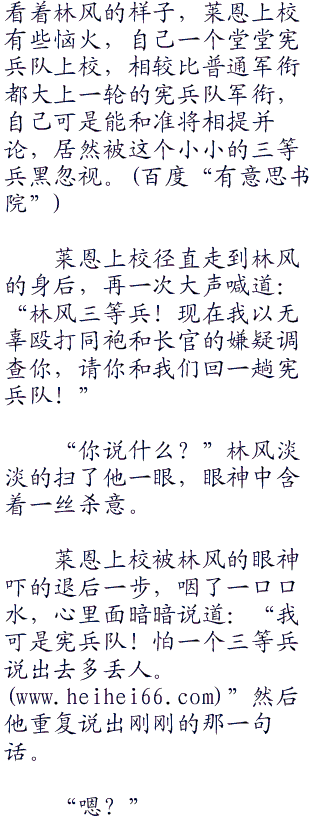 看着林风的样子，莱恩上校
有些恼火，自己一个堂堂宪
兵队上校，相较比普通军衔
都大上一轮的宪兵队军衔，
自己可是能和准将相提并
论，居然被这个小小的三等
兵黑忽视。(百度“有意思书
院”)
莱恩上校径直走到林风
的身后，再一次大声喊道：
“林风三等兵！现在我以无
辜殴打同袍和长官的嫌疑调
查你，请你和我们回一趟宪
兵队！”
“你说什么？”林风淡
淡的扫了他一眼，眼神中含
着一丝杀意。
莱恩上校被林风的眼神
吓的退后一步，咽了一口口
水，心里面暗暗说道：“我
可是宪兵队！怕一个三等兵
说出去多丢人。
(www.heihei66.com)”然后
他重复说出刚刚的那一句
话。
“嗯？”